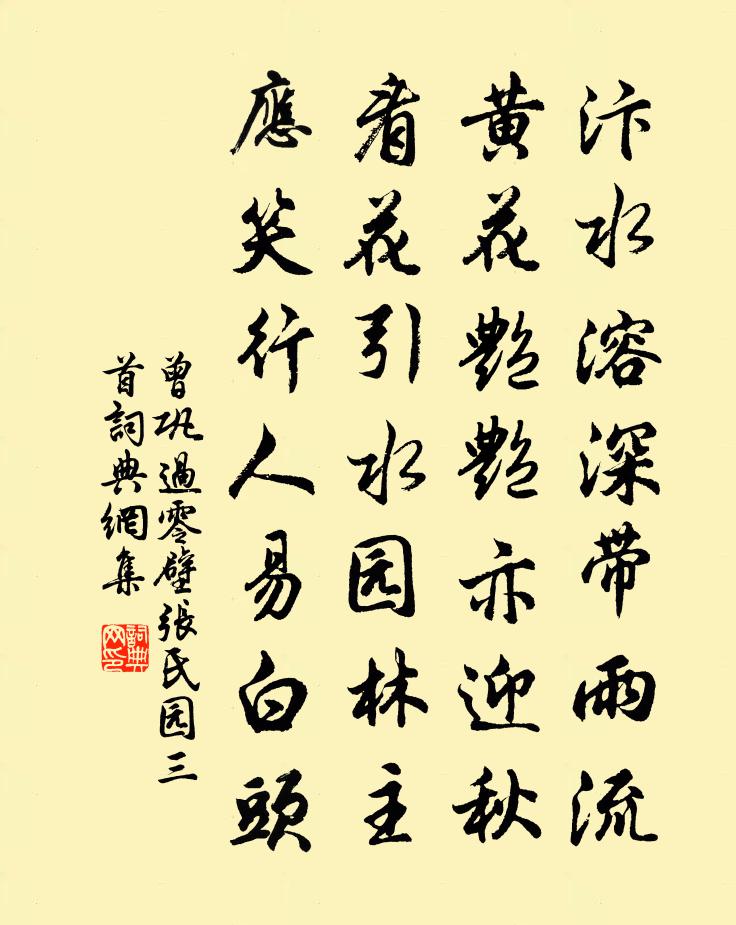 汴水溶深带雨流
黄花艷艷亦迎秋
看花引水园林主
應笑行人易白頭
曾巩過零壁張民园三
首詞典網集
詞典网印